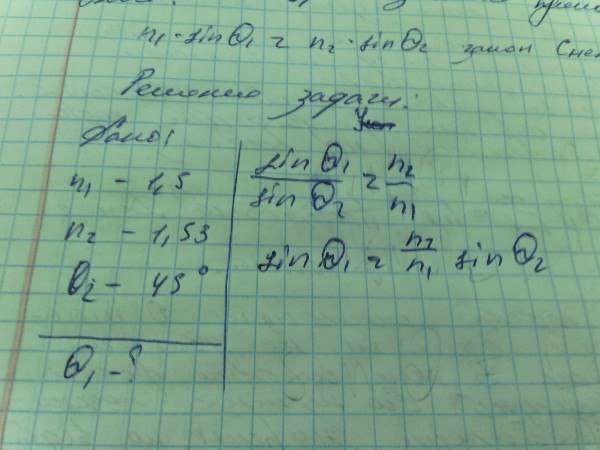 n₁ · sin Θ₁ = n₂ · sin Θ₂ закон Снел
Решение задачи:
Дано:
n₁ – 1,5
n₂ – 1,53
Θ₂ – 45°
Θ₁ – ?
sin Θ₁ / sin Θ₂ = n₂ / n₁
sin Θ₁ = n₂ / n₁ sin Θ₂